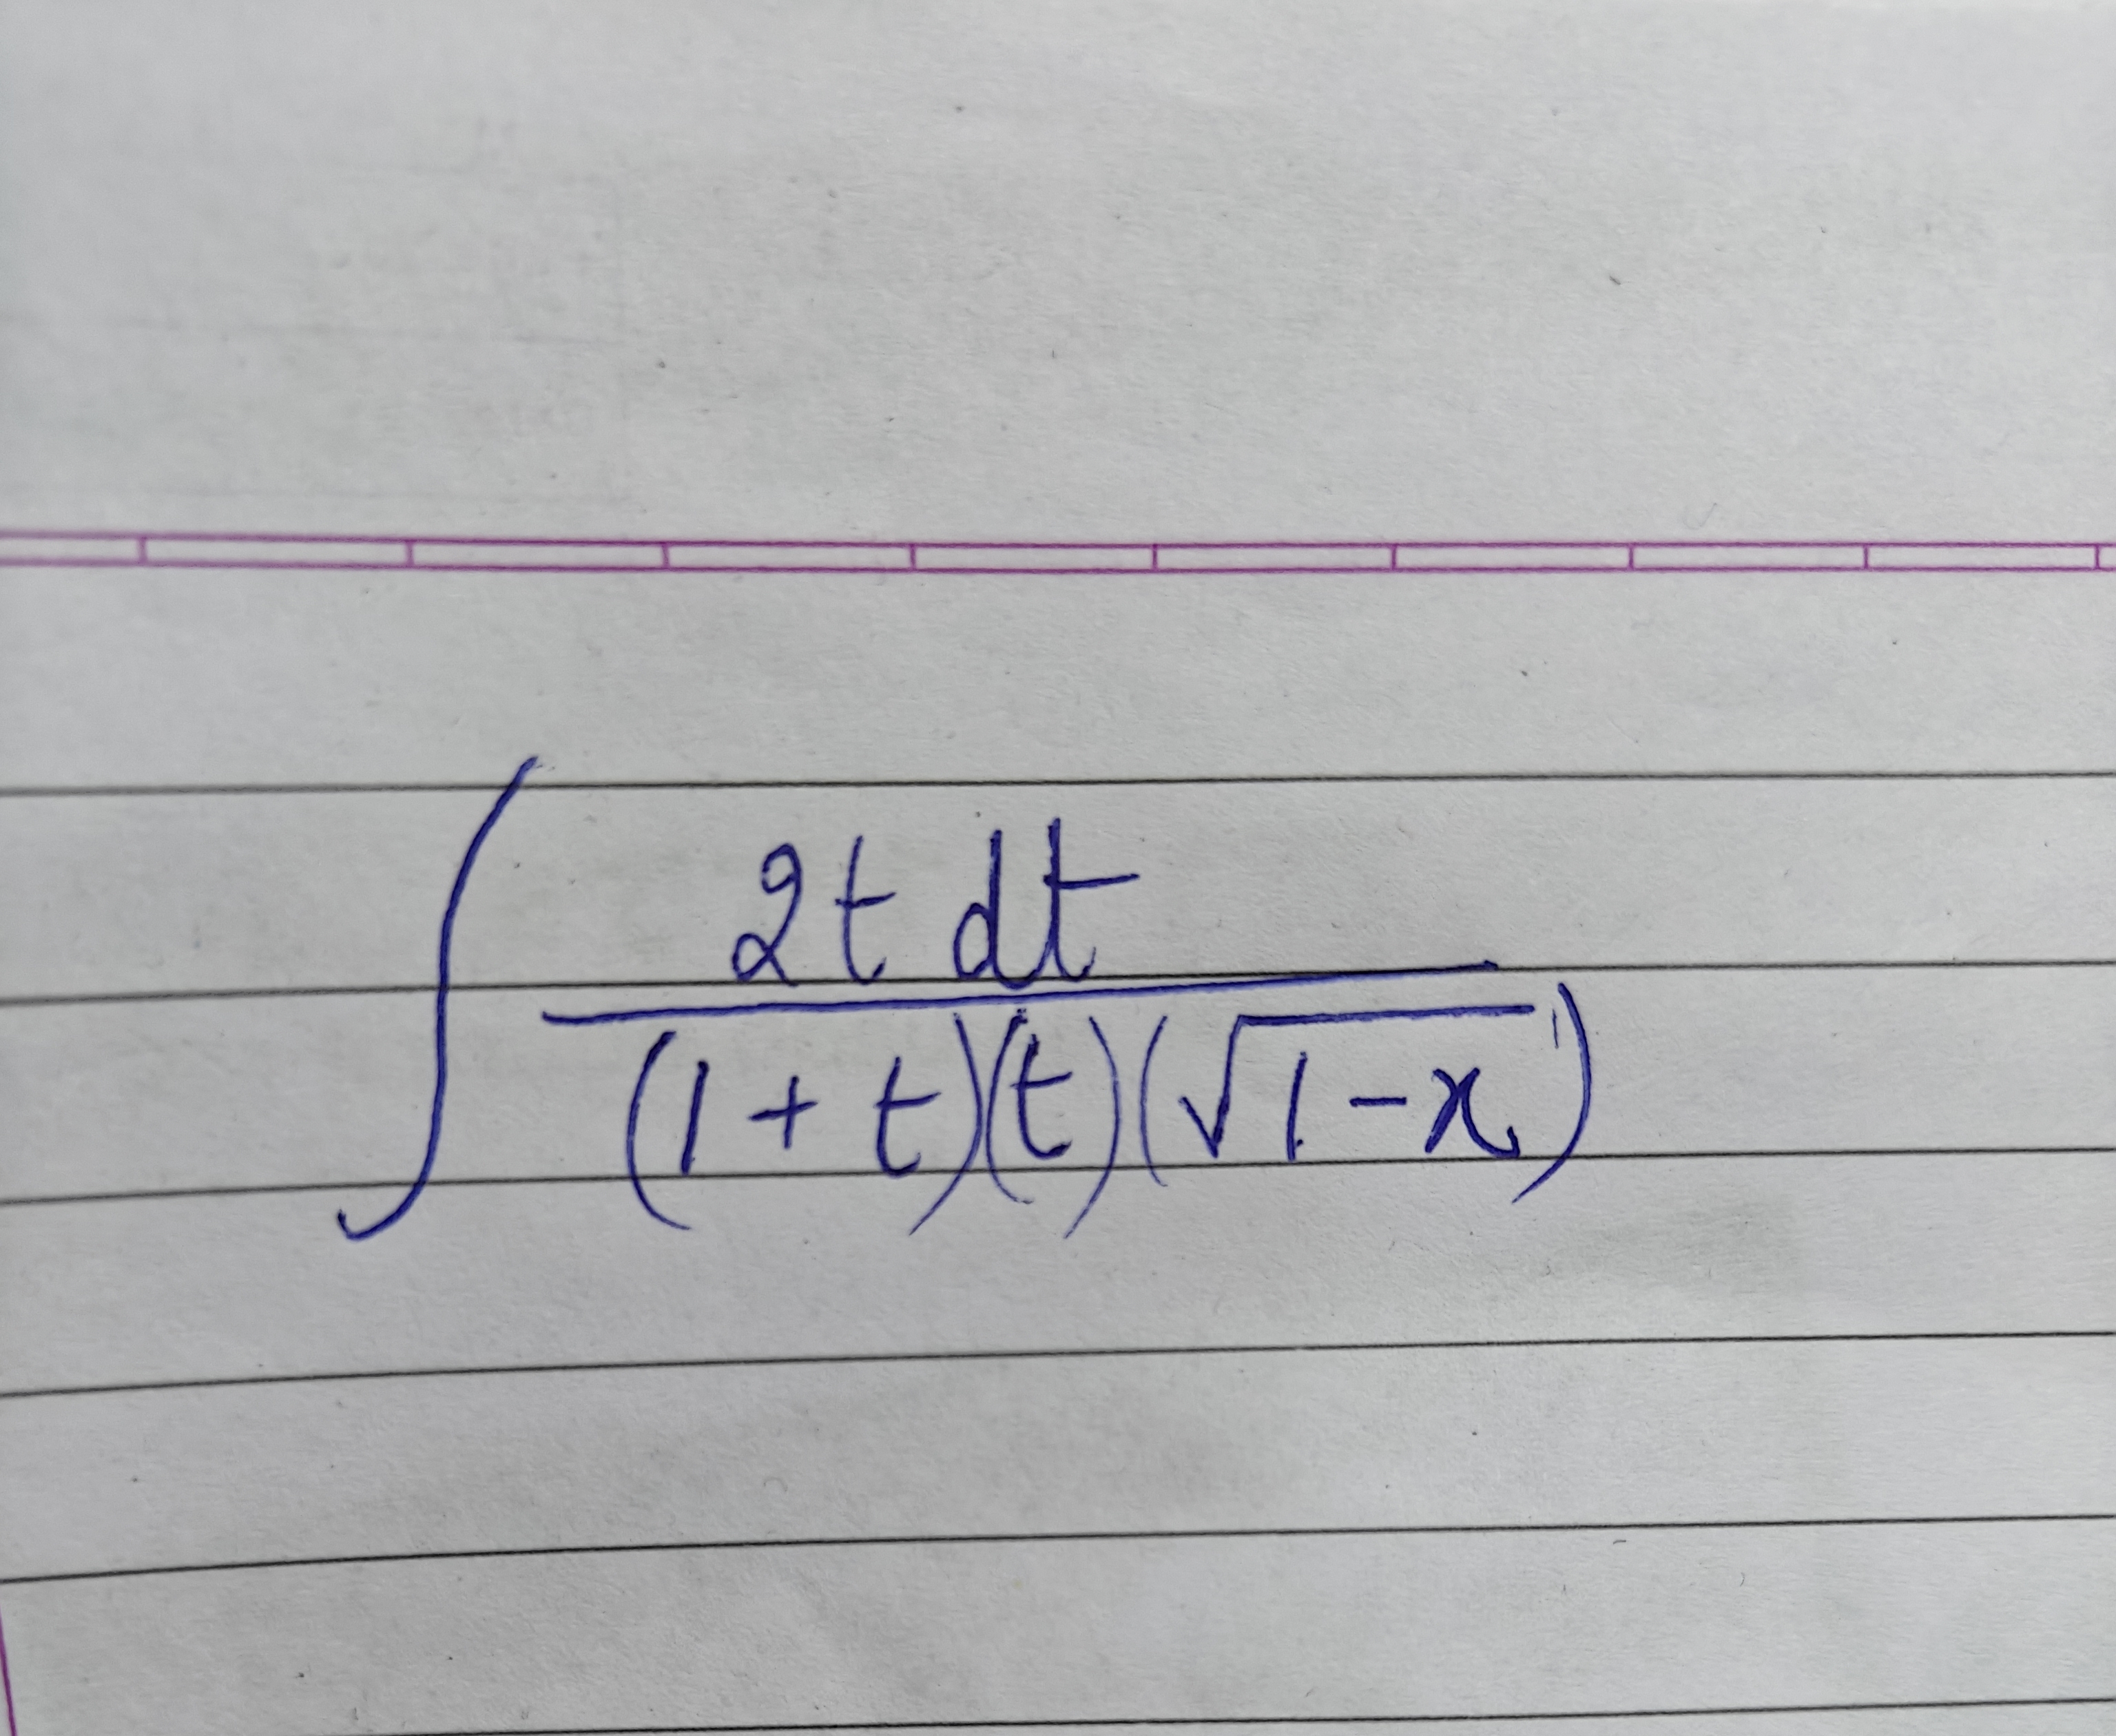 ∫ 2t dt / (1 + t)(t)(√(1 - x))